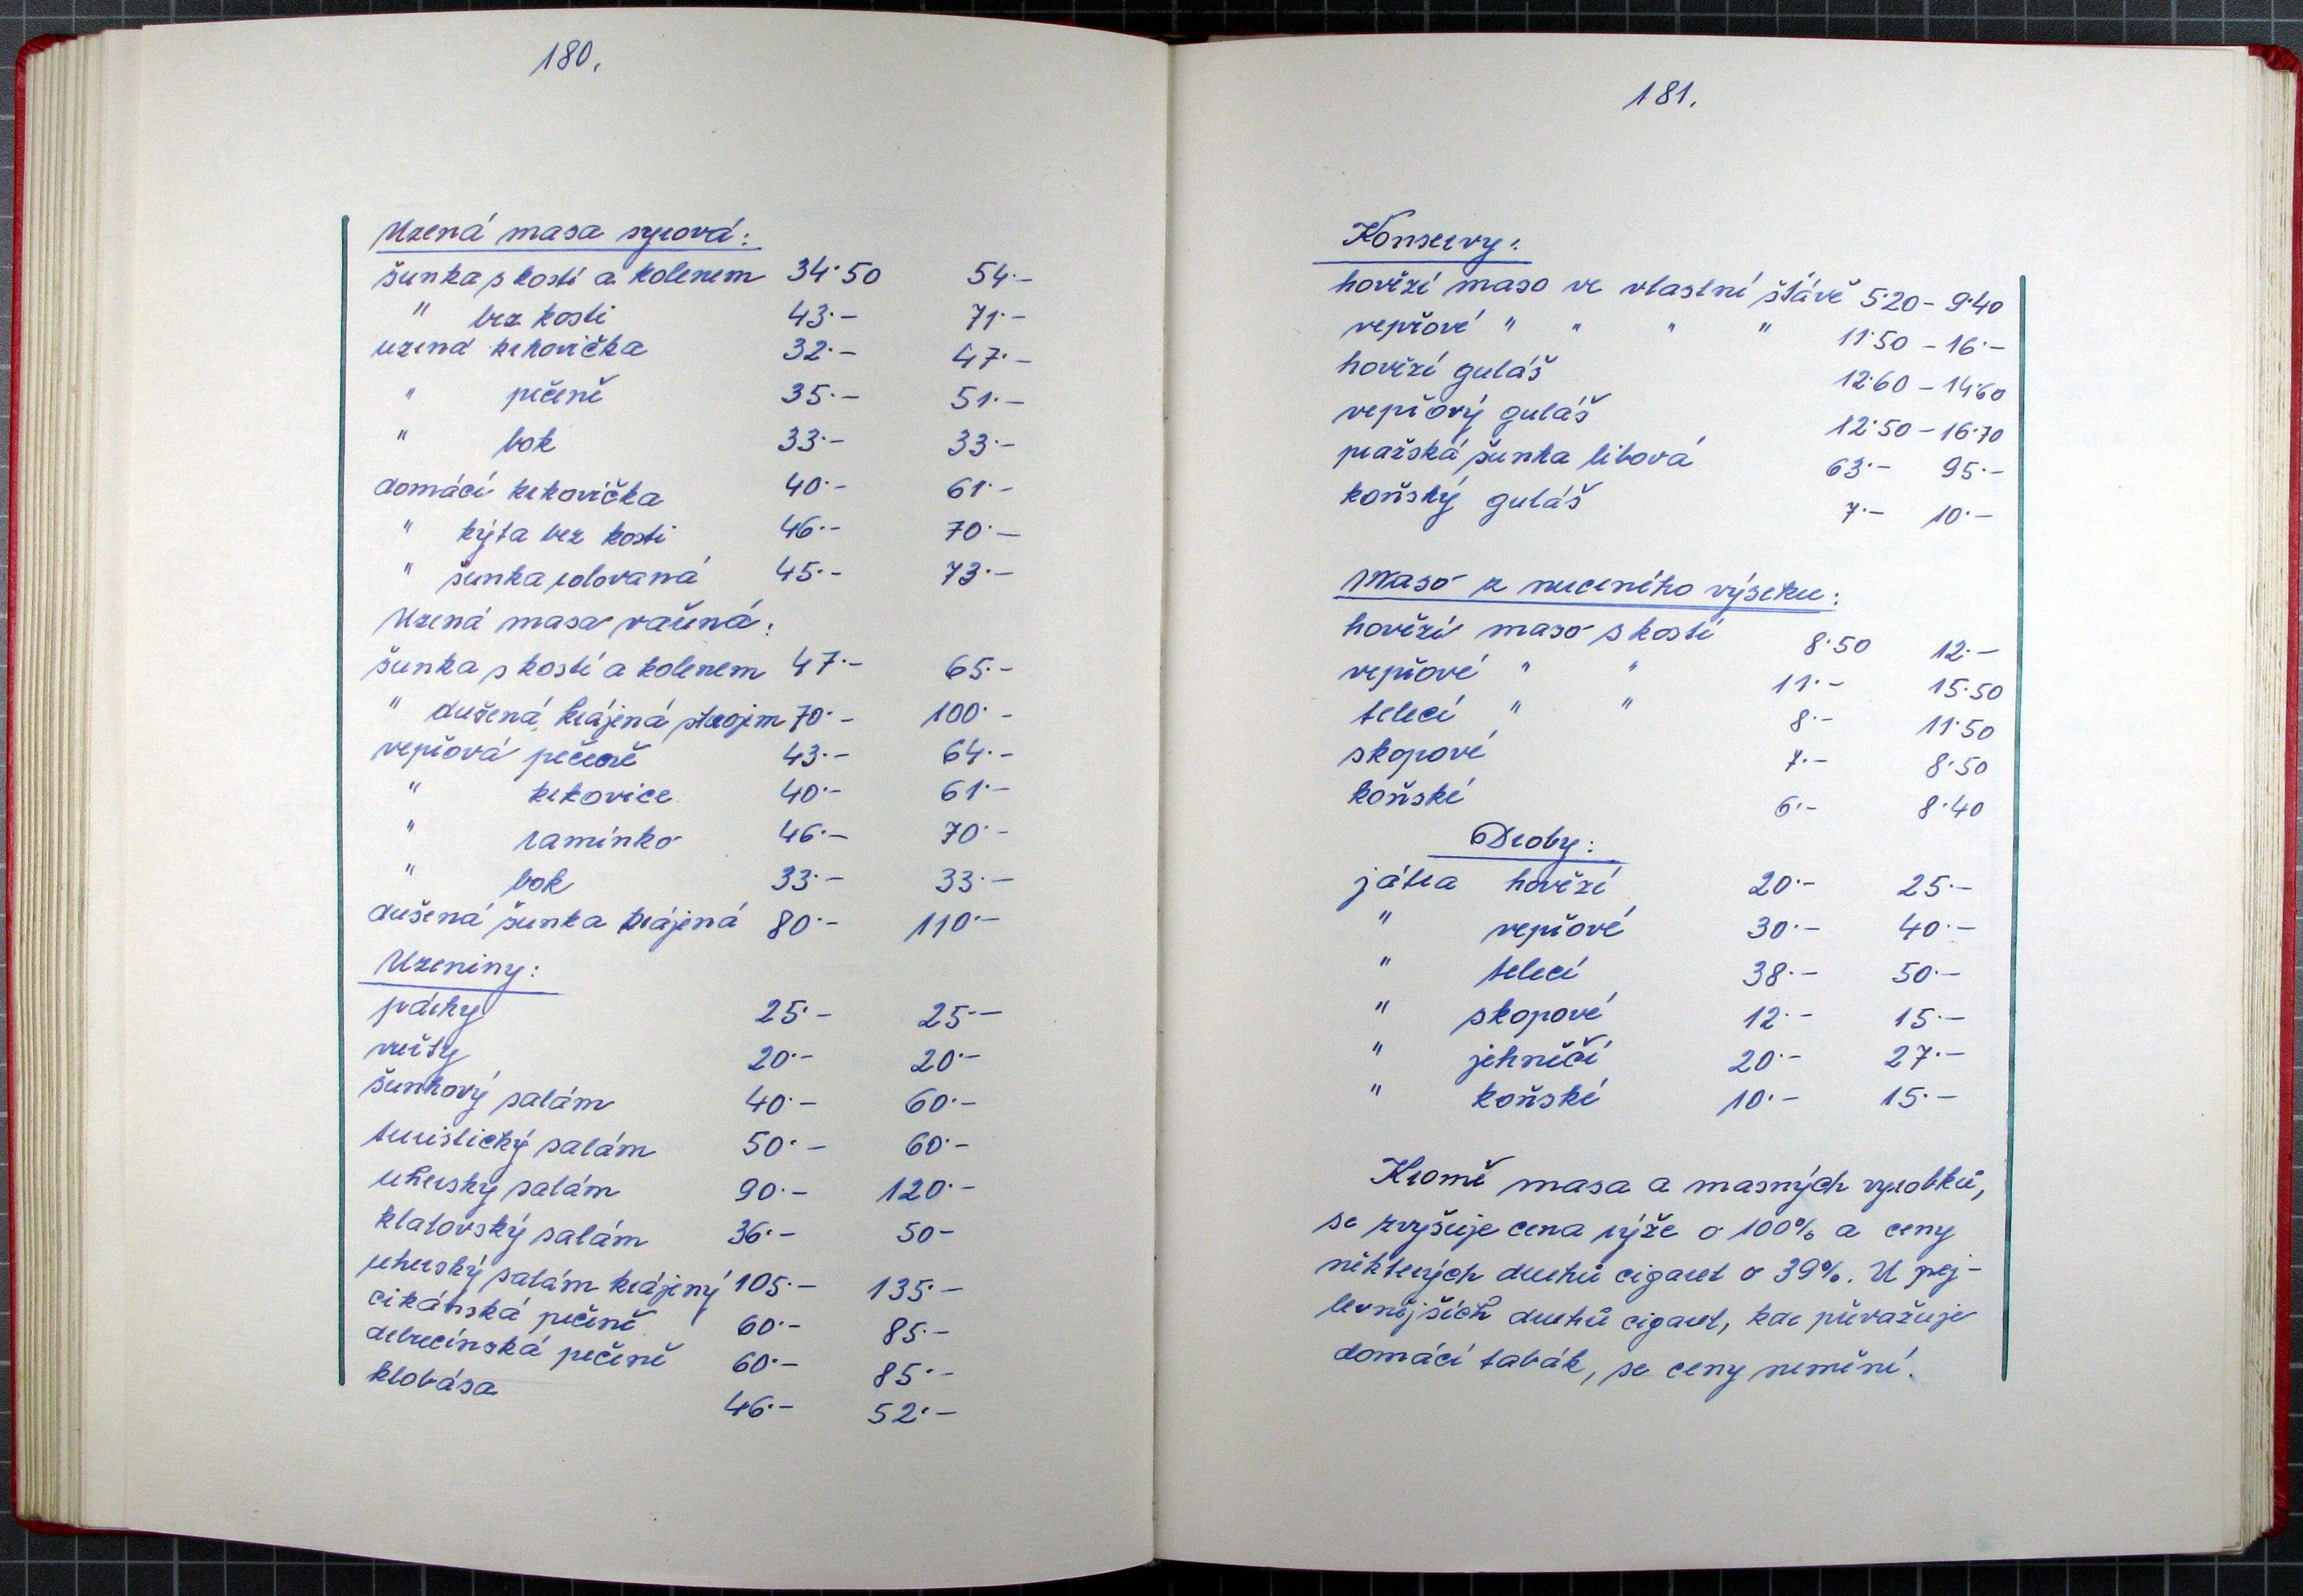 180.
Uzená masa syrová:
šunka s kostí a kolenem 34·50 54·-
" bez kosti 43·- 71·-
uzená krkovička 32·- 47·-
" pečeně 35·- 51·-
" bok 33·- 33·-
domácí krkovička 40·- 61·-
" kýta bez kosti 46·- 70·-
" šunka rolovaná 45·- 73·-
Uzená masa vařená:
šunka s kostí a kolenem 47·- 65·-
" dušená krájená strojem 70·- 100·-
vepřová pečeně 43·- 64·-
" krkovice 40·- 61·-
" ramínko 46·- 70·-
" bok 33·- 33·-
dušená šunka krájená 80·- 110·-
Uzeniny:
párky 25·- 25·-
vuřty 20·- 20·-
šunkový salám 40·- 60·-
turistický salám 50·- 60·-
uherský salám 90·- 120·-
klatovský salám 36·- 50-
uherský salám krájený 105·- 135·-
cikánská pečeně 60·- 85·-
debrecínská pečeně 60·- 85·-
klobása 46·- 52·-
181.
Konservy:
hovězí maso ve vlastní šťávě 5·20 - 9·40
vepřové " " " " 11·50 - 16·-
hovězí guláš 12·60 - 14·60
vepřový guláš 12·50 - 16·70
pražská šunka libová 63·- 95·-
koňský guláš 7·- 10·-
Maso z nuceného výseku:
hovězí maso s kostí 8·50 12·-
vepřové " " 11·- 15·50
telecí " " 8·- 11·50
skopové 7·- 8·50
koňské 6·- 8·40
Droby:
játra hovězí 20·- 25·-
" vepřové 30·- 40·-
" telecí 38·- 50·-
" skopové 12·- 15·-
" jehněčí 20·- 27·-
" koňské 10·- 15·-
Kromě masa a masných výrobků,
se zvyšuje cena rýže o 100% a ceny
některých druhů cigaret o 39%. U nej-
levnějších druhů cigaret, kde převažuje
domácí tabák, se ceny nemění.